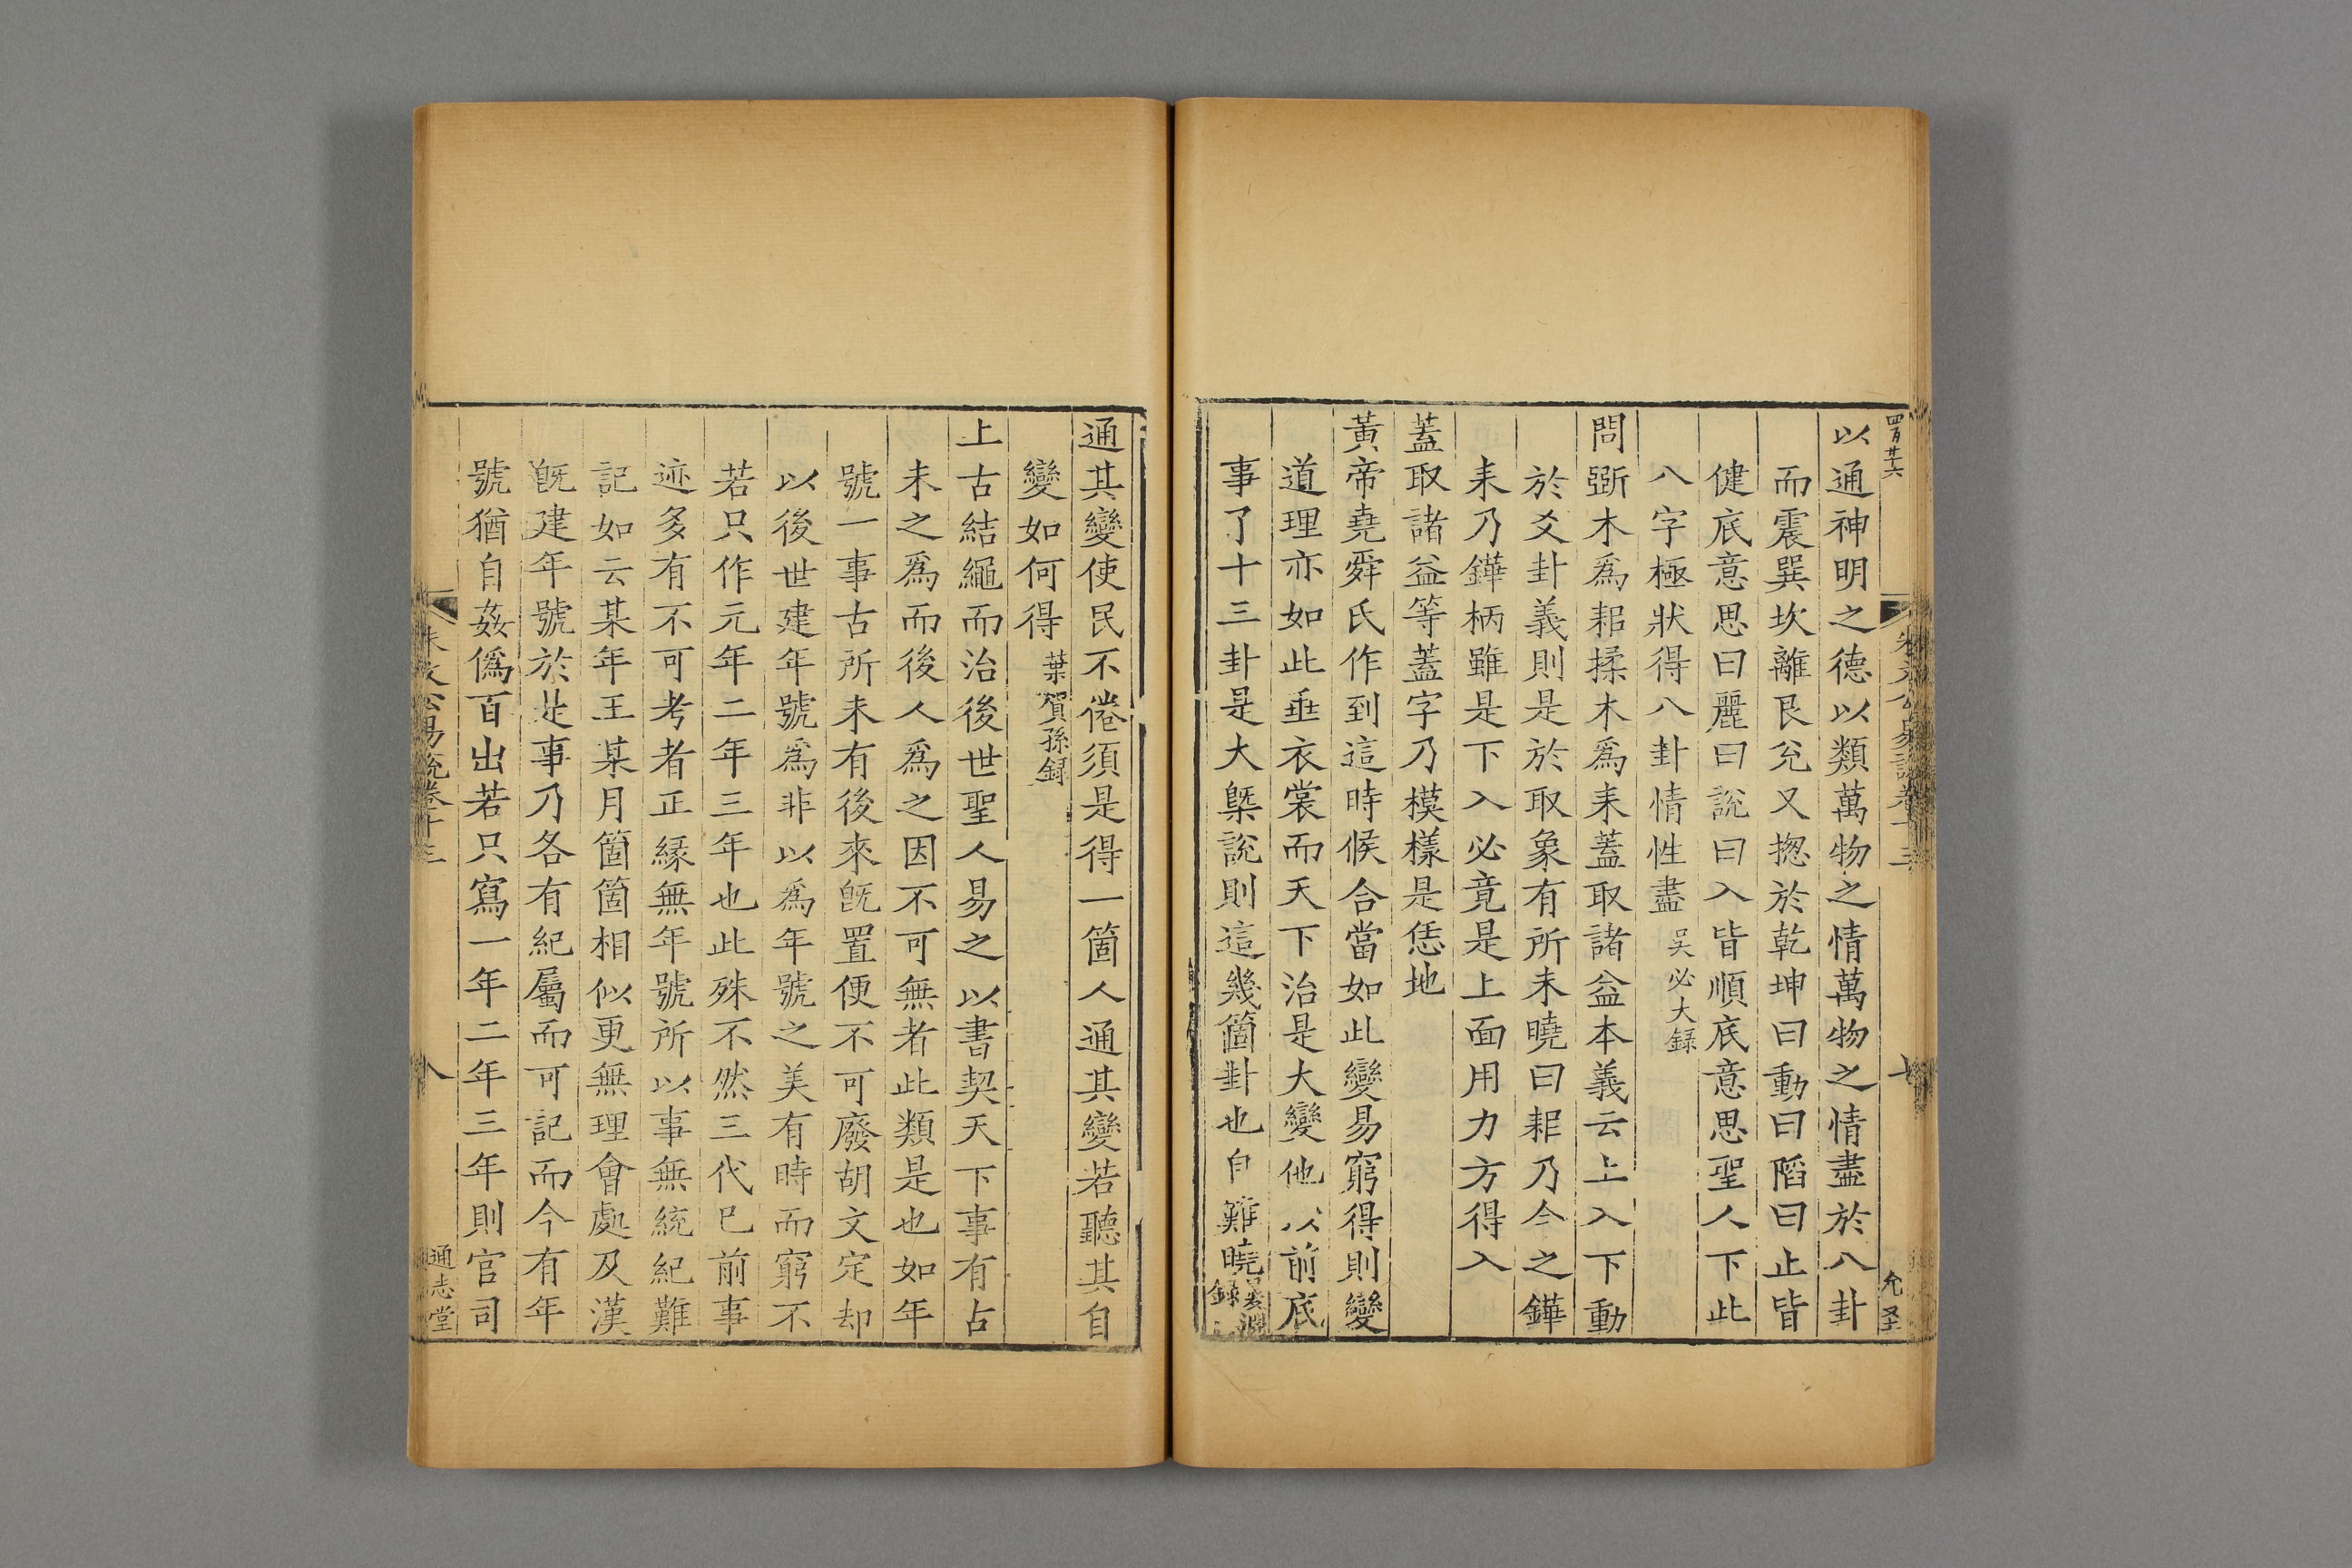 四百廿六
朱文公易說卷十三
七
允圣
以通神明之德以類萬物之情萬物之情盡於八卦
而震巽坎離艮兊又揔於乾坤曰動曰陷曰止皆
健底意思曰麗曰說曰入皆順底意思聖人下此
八字極狀得八卦情性盡吳必大録
問斵木爲耜揉木爲耒蓋取諸益本義云上入下動
於爻卦義則是於取象有所未曉曰耜乃今之鏵
耒乃鏵柄雖是下入必竟是上面用力方得入
蓋取諸益等蓋字乃模樣是恁地
黃帝堯舜氏作到這時候合當如此變易窮得則變
道理亦如此垂衣裳而天下治是大變他以前底
事了十三卦是大槩說則這幾箇卦也自難曉淵録
通其變使民不倦須是得一箇人通其變若聽其自
變如何得葉賀孫録
上古結繩而治後世聖人易之以書契天下事有占
未之爲而後人爲之因不可無者此類是也如年
號一事古所未有後來旣置便不可廢胡文定却
以後世建年號爲非以爲年號之美有時而窮不
若只作元年二年三年也此殊不然三代已前事
迹多有不可考者正緣無年號所以事無統紀難
記如云某年王某月箇箇相似更無理會處及漢
旣建年號於是事乃各有紀屬而可記而今有年
號猶自姦僞百出若只寫一年二年三年則官司
朱文公易說卷十三
八
通志堂